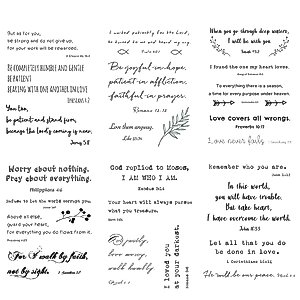 But as for you,
be strong and do not give up,
for your work will be rewarded.
Be completely humble and gentle
be patient
bearing with one another in love
Ephesians 4:2
You too,
be patient and stand firm,
because the Lord's coming is near.
James 5:8
Worry about nothing.
Pray about everything.
Philippians 4:6
Above all else,
guard your heart,
for everything you do flows from it.
Proverbs 4:23
For we walk by faith,
not by sight.
I waited patiently for the Lord,
he turned to me and heard my cry.
Be joyful in hope,
patient in affliction,
faithful in prayer.
Romans 12:12
Love them anyway.
God replied to Moses,
I AM WHO I AM.
Exodus 3:14
Your heart will always pursue
what you treasure.
do justly.
love mercy.
walk humbly.
I loved you
at your darkest.
When you go through deep waters,
I will be with you.
Isaiah 43:2
I found the one my heart loves.
To everything there is a season,
a time for every purpose under heaven.
Love covers all wrongs.
Proverbs 10:12
Love never fails
Remember who you are.
In this world,
you will have trouble.
But take heart,
I have overcome the world.
John 16:33
Let all that you do
be done in love.
1 Corinthians 16:14
He will be our peace.